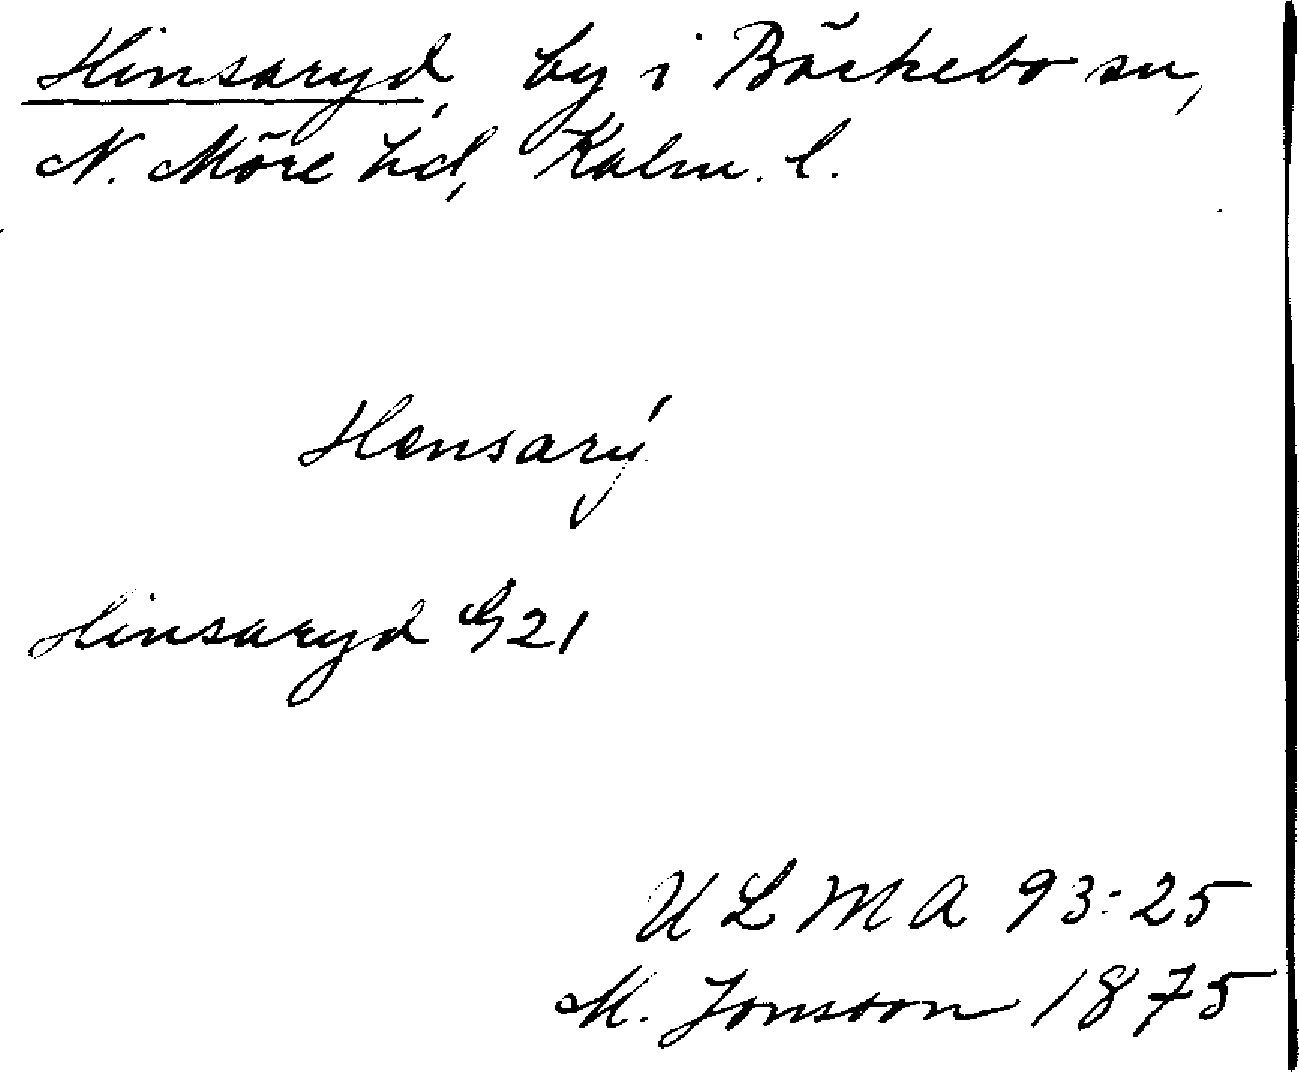 Hinsaryd, by i Bäckebo sn,
N. Möre hd, Kalm. l.
Hensarý
Hinsaryd G 21
ULMA 93:25
M. Jonsson 1875